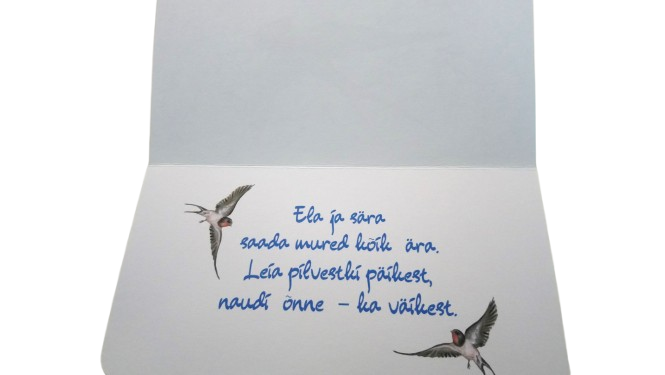 Ela ja sära
saada mured kõik ära.
Leia pilvestki päikest,
naudi õnne – ka väikest.